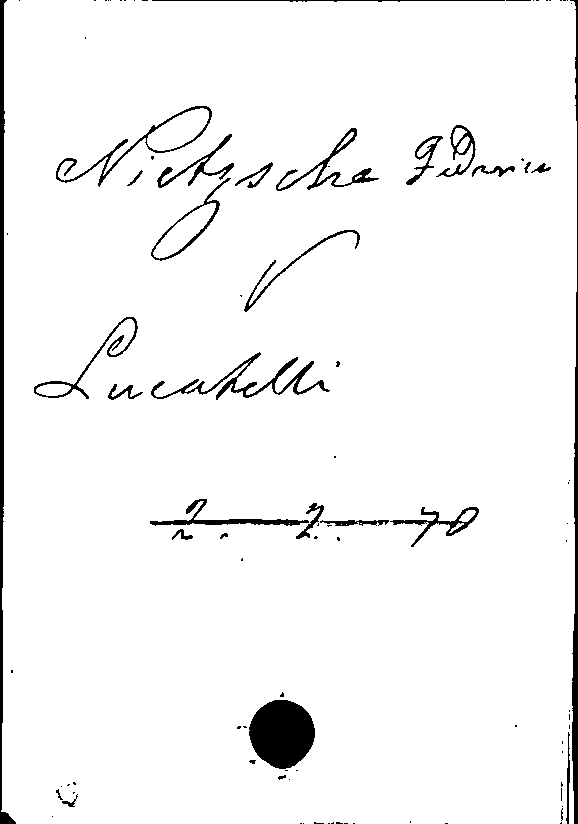 Nietzsche Federico
V
Lucatelli
2. 2. 70